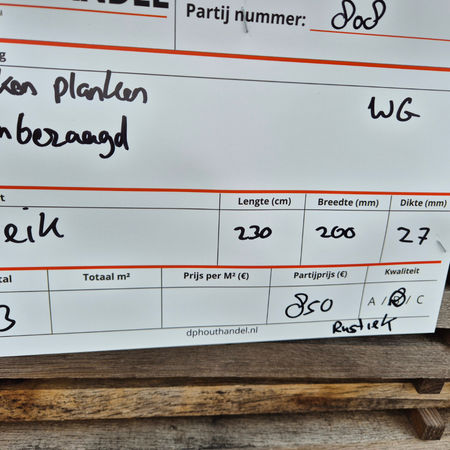 HANDEL
Partij nummer: 808
g
ken planken WG
nbezaagd
t Lengte (cm) Breedte (mm) Dikte (mm)
eik 230 200 27
tal Totaal m² Prijs per M² (€) Partijprijs (€) Kwaliteit
3 850 A / B / C
dphouthandel.nl Rustiek